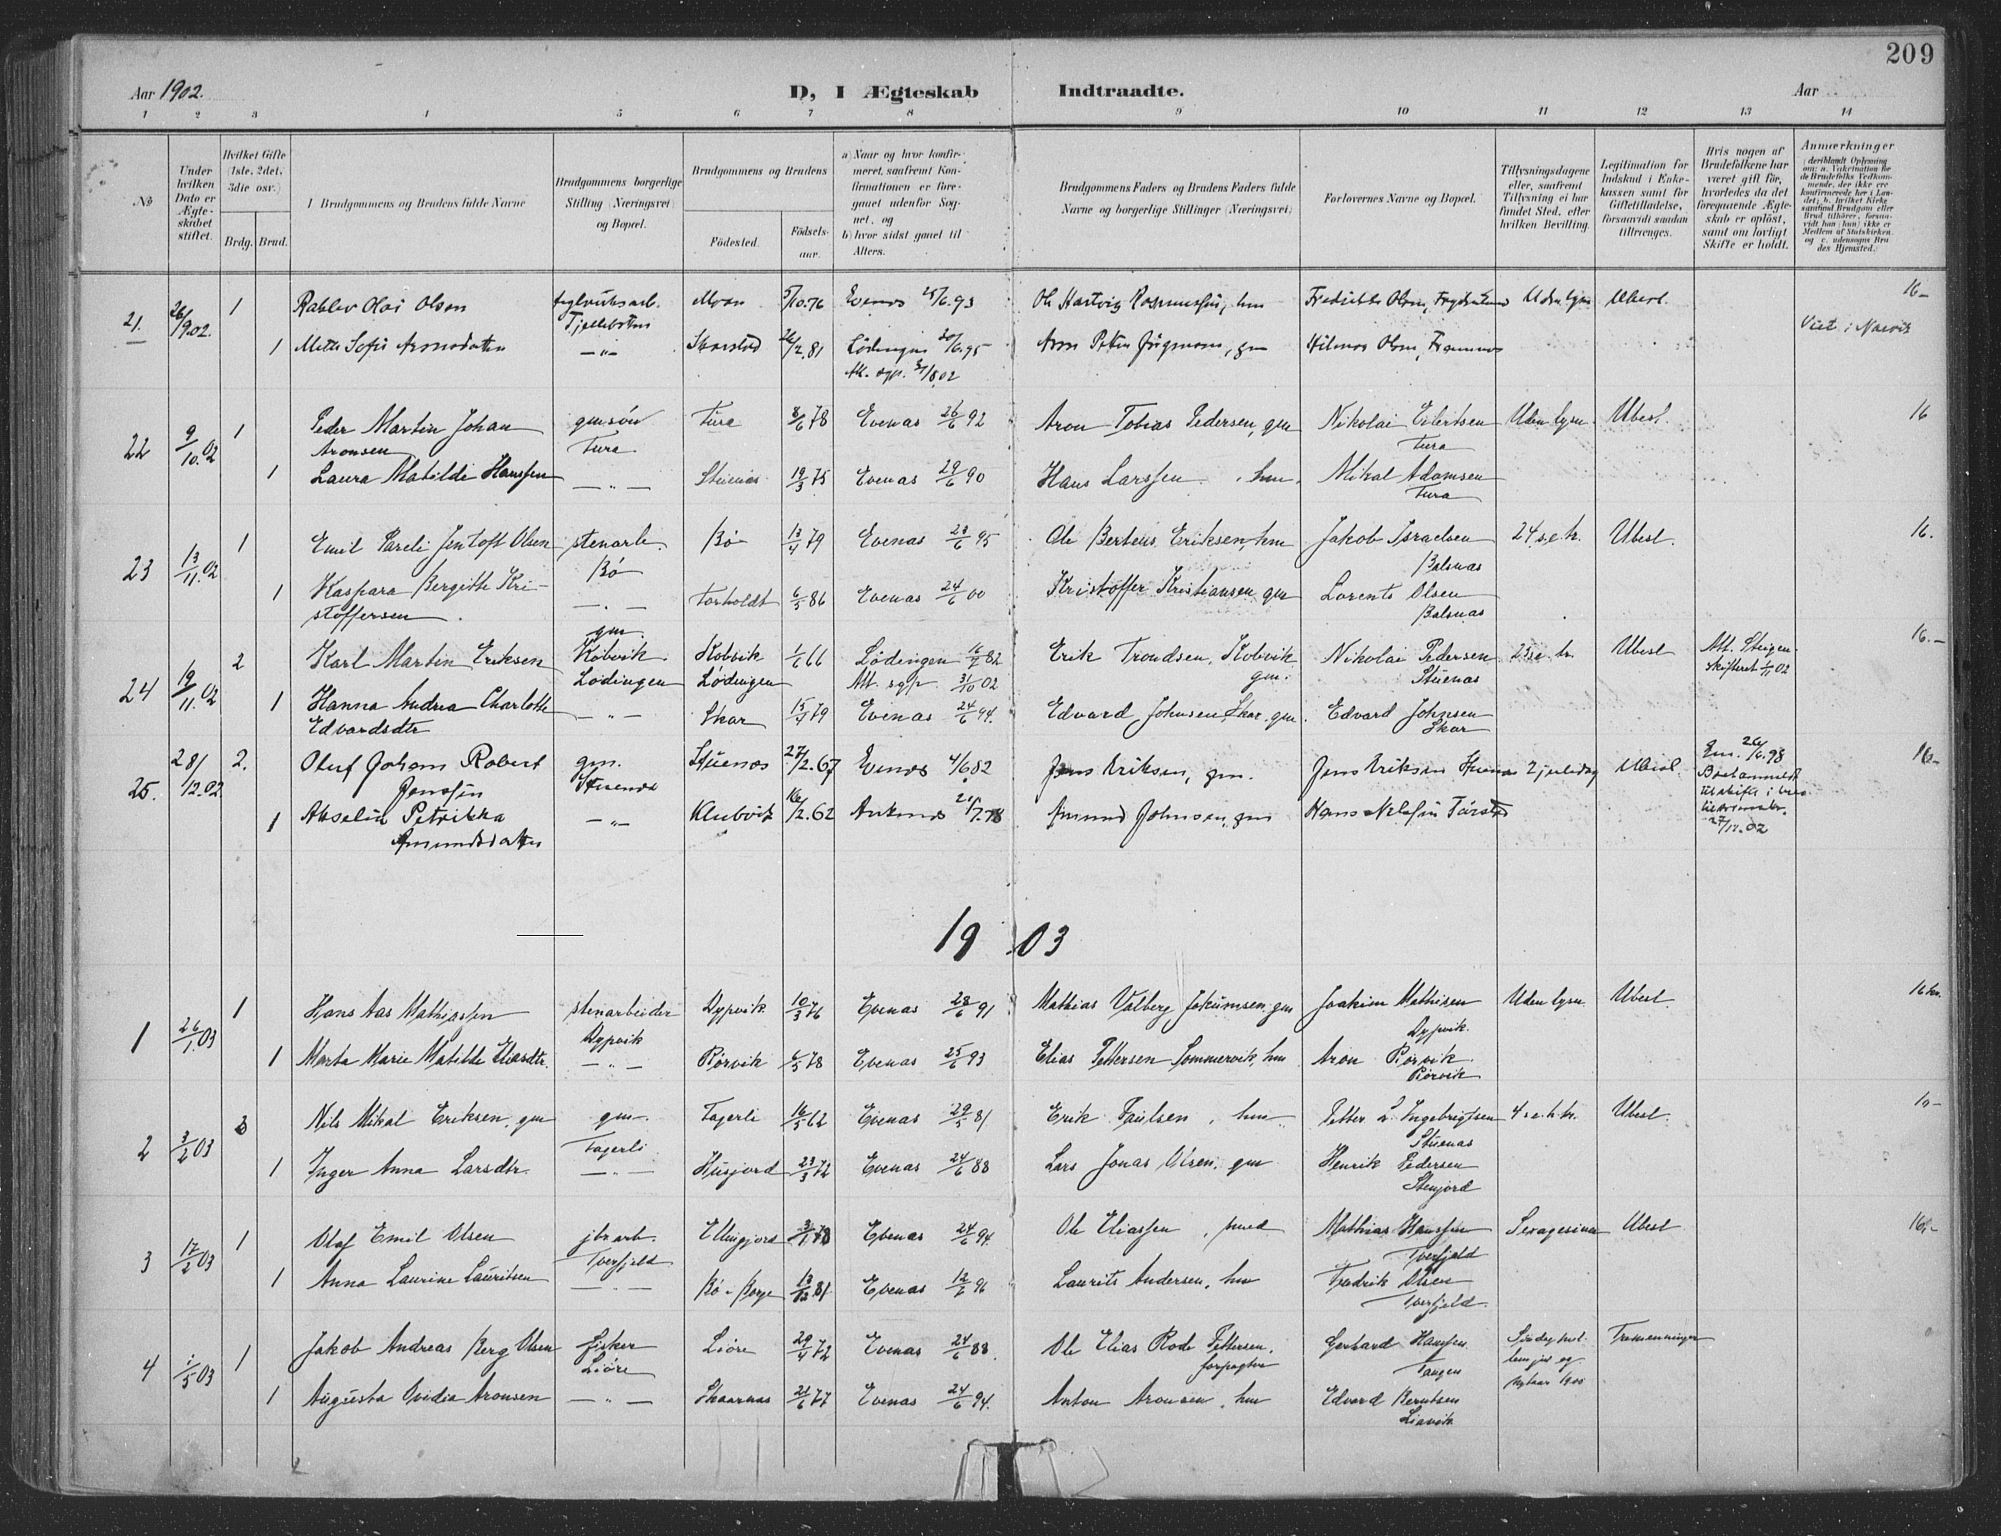 209
Aar 1902. D, I Ægteskab Indtraadte. Aar
1 2 3 4 5 6 7 8 9 10 11 12 13 14
No
Under hvilken Dato er Ægteskabet stiftet.
Hvilket Gifte (1ste, 2det, 3die osv.)
Brdg. Brud.
I Brudgommens og Brudens fulde Navne
Brudgommens borgerlige Stilling (Næringsvei) og Bopæl.
Brudgommens og Brudens
Fødested. Fødselsaar.
a) Naar og hvor konfirmeret, saafremt Konfirmationen er foregaaet udenfor Sognet, og
b) hvor sidst gaaet til Alters.
Brudgommens Faders og Brudens Faders fulde Navne og borgerlige Stillinger (Næringsvei)
Forlovernes Navne og Bopæl.
Tillysningsdagene eller, saafremt Tillysning ei har fundet Sted, efter hvilken Bevilling.
Legitimation for Indskud i Enkekassen samt for Giftetilladelse, forsaavidt saadan tiltrænges.
Hvis nogen af Brudefolkene har været gift før, hvorledes da det foregaaende Ægteskab er opløst, samt om lovligt Skifte er holdt.
Anmærkninger
21. 26/ 1902. 1 Olai Olsen Moan 5/10.76 Evenes 25/6.93 Ole Hartvig Rasmussen, hm Fredrikke Olsen, Uden lysn Ubesl. 16-
1 Mette Sofie Aronsdatter —"— Skarstad 26/2.81 Lødingen 30/6.95 Aron Peter gm Hilmar Olsen, Viet i Narvik
22 9/10.02 1 Peder Martin Johan gmsøn Tura 8/6 78 Evenas 26/6 92 Aron Tobias Pedersen, gm Nikolai Eilertsen Uden lysn Ubesl. 16
Aronsen Tura Tura
1 Laura Matilde Hanssen —"— Stuenas 19/3 75 Evenas 29/6 90 Hans Larssen, hm. Mikal Adamsen
Tura
23 13/11.02 1 Emil Pareli Jentoft Olsen stenarb. Bø 13/4 79 Evenas 23/6 95 Ole Berteus Eriksen, hm Jakob Israelsen 24 s.e.tr. Ubesl. 16.
Bø Balsnas
1 Kaspara Bergitte Kri- —"— Forholdt 6/5 86 Evenas 24/6 00 Kristoffer Kristiansen gm Lorents Olsen
stoffersen Balsnas
24 19/11.02 2 Karl Martin Eriksen gm. Kobvik Kobvik 1/6 66 Lødingen 16/7 82 Erik Trondsen, Kobvik Nikolai Pedersen 23 s.e. tr. Ubesl Att. Steigen 16.-
Lødingen Lødingen Att. sgpr. 31/10 02 gm. Stuenas skifteret 1/11 02
1 Hanna Andrea Charlotte —"— Skar 15/4 79 Evenas 24/6 94. Edvard Johnsen Skar, gm. Edvard Johnsen
Edvardsdtr Skar
25. 28/12.02. 2. Oluf Johan Robert gm. Stuenes 27/2.67 Evenes 4/6 82 Jens Eriksen, gm. Jens Eriksen Ubesl. Em. 26/6.98 16-
Jenssen Stuenes
1 Akselie Petrikka —"— Klubvik 16/2.62 Ankenes 21/7.78 Amund Johnsen, gm
Amundsdatter 27/12.02
1903
1 26/1.03 1 Hans Aas Mathisen stenarbeider Dypvik 10/3 76 Evenas 28/6 91 Mathias Valberg Jakumsen. gm Joakim Mathisen Uden lysn. Ubesl. 16 kr.
Dypvik Dypvik.
1 Marta Marie Matilde Eliasdtr. —"— Rørvik 6/5 78 Evenas 25/6 93 Elias Pettersen Sommervik, hm Aron Rørvik.
Rørvik
2 3/2 03 3 Nils Mikal Eriksen, gm gm. Fagerli 16/5 62 Evenas 29/5 81 Erik Paulsen, hm. Petter L. Ingebrigtsen 4 s.e.h.k. Ubesl.
Fagerli Stuenas
1 Inger Anna Larsdtr. —"— Husjord 23/3 72 Evenas 24/6 88 Lars Jonas Olsen, gm Henrik Pedersen
Stenjord
3 17/2 03 1 Olaf Emil Olsen jbrarb. 3/1 78 Evenas 24/6 94. Ole Eliassen, Mathias Hanssen Sexagesima Ubesl 16,-
Tverfjeld Tverfjeld
1 Anna Laurine Lauritsen —"— Bø - Borge 13/12 81 Evenas 12/6 96 Laurits Andersen, hm Fredrik Olsen
Tverfjeld.
4 1/5 03 1 Jakob Andreas Berg Olsen fisker Liøre 29/4 72 Evenas 24/6 88. Ole Elias Rode Pettersen, Gerhard Hanssen Tremenninger
Liøre forpagter Tangen
1 Augusta Ovidia Aronsen —"— Skaarnas 21/6 77 Evenas 24/6 94. Anton Aronsen, hm Edvard Berntsen
Liavik